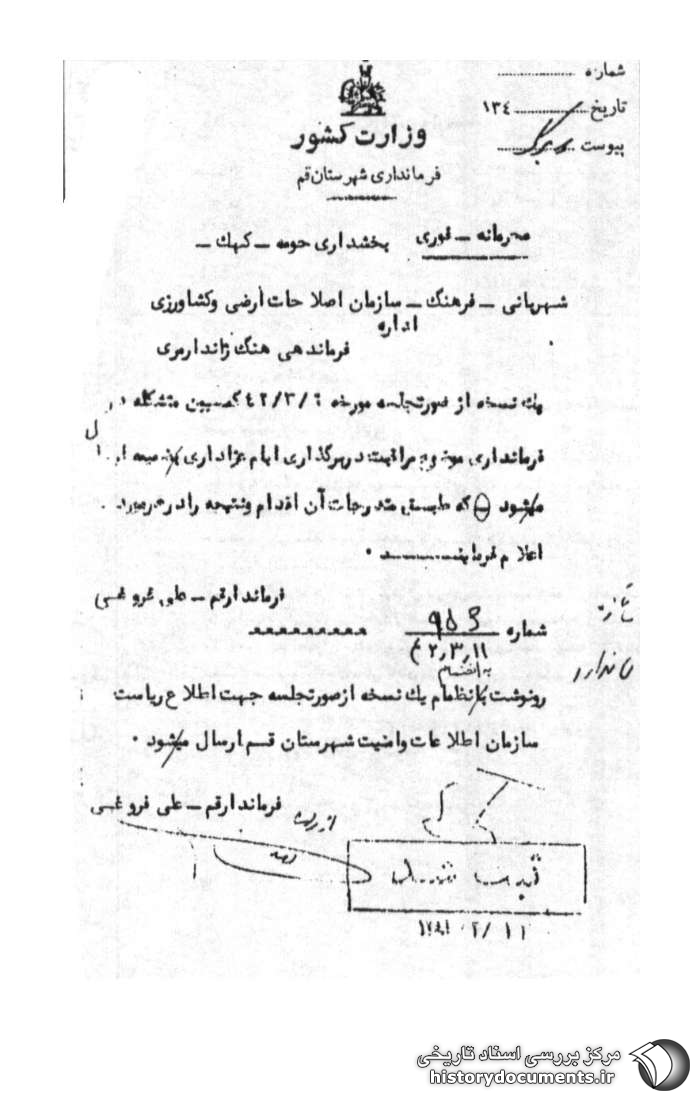 شماره
تاریخ ۱۳٤
پیوست
وزارت کشور
فرمانداری شهرستان قم
محرمانه ـ فوری بخشداری حومه ـ کهك ـ
شهربانی ـ فرهنگ ـ سازمان اصلاحات أرضی وکشاورزی
اداره
فرماندهی هنگ ژاندارمری
يك نسخه از صورتجلسه مورخه ٤٢/٣/٦ کمسیون متشکله در
فرمانداری مراقبت در برگذاری ایام عزاداری
میشود که طبق مندرجات آن اقدام ونتیجه را
اعلام فرمایند .
فرماندار قم ـ علی فروغی
شماره ۹۵۳
٤٢٫٣٫۱۱
به انضمام
رونوشت بانظمام يك نسخه ازصورتجلسه جهت اطلاع ریاست
سازمان اطلاعات وامنیت شهرستان قسم ارسال میشود .
فرماندار قم ـ علی فروغی
ثبت شد
مرکز بررسی اسناد تاریخی
historydocuments.ir